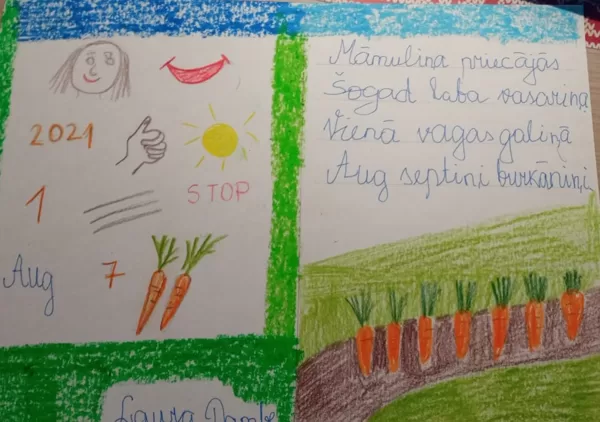 2021
1
STOP
Aug
7
Māmuliņa priecājās
Šogad laba vasariņa
Vienā vagas galiņā
Aug septiņi burkāniņi
Laura